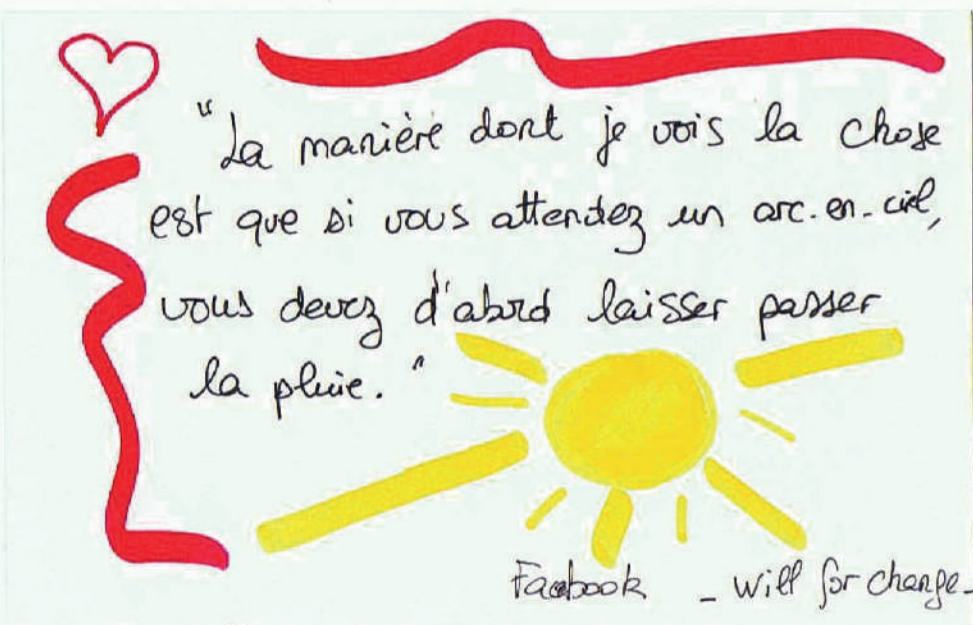 "La manière dont je vois la chose
est que si vous attendez un arc-en-ciel,
vous devez d'abord laisser passer
la pluie."
Facebook - Will for change -